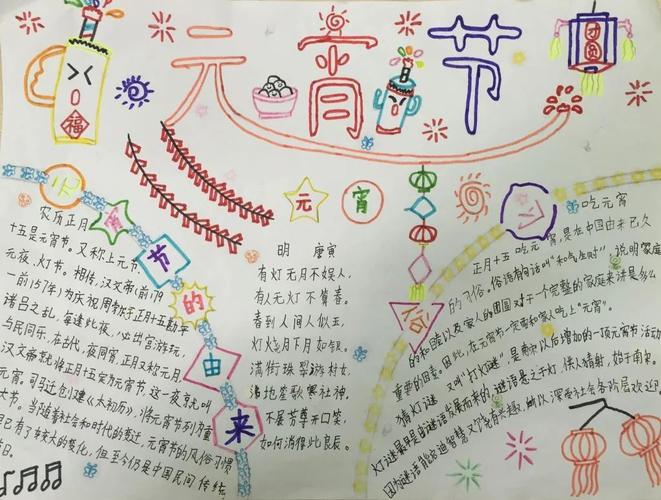 元宵节
福
团圆
元宵节的由来
农历正月
十五是元宵节。又称上元节
元夜、灯节。相传，汉文帝(前179
—前157年)为庆祝周勃于正月十五勘平
诸吕之乱，每逢此夜，必出宫游玩，
与民同乐，在古代，夜同宵，正月又称元月，
汉文帝就将正月十五定为元宵节，这一夜就叫
元宵。司马迁创建《太初历》，将元宵节列为重
大节。当随着社会和时代的变迁，元宵节的风俗习惯
早已有了较大的变化，但至今仍是中国民间传统
节日。
元宵
明 唐寅
有灯无月不娱人，
有人无灯不算春。
春到人间人似玉，
灯烧月下月如银。
满街珠翠游村女，
沸地笙歌赛社神。
不展芳尊开口笑，
如何消得此良辰。
吃元宵
正月十五吃元宵，是在中国由来已久
的习俗。俗语有句话叫“和气生财”说明家庭
的和睦以及家人的团圆对于一个完整的家庭来讲是多么
重要的因素。因此，在元宵节一定要和家人吃上“元宵”。
猜灯谜 又叫“打灯谜”是南宋以后增加的一项元宵节活动
灯谜最早是由谜语发展而来的，谜语悬之于灯，供人猜射，始于南宋。
因为谜语能启迪智慧又饶有兴趣，所以深受社会各阶层欢迎。